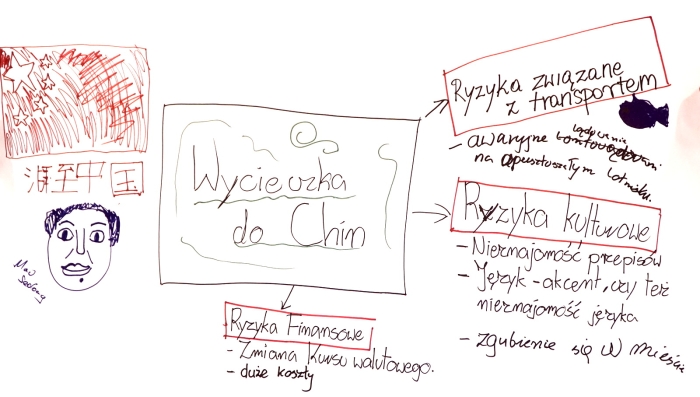 Ryzyka związane
z transportem
- awaryjne lądowanie
na opustoszałym lotnisku.
至中国
Wycieczka
do Chin
Ryzyka kulturowe
- Nieznajomość przepisów
- Język - akcent, czy też
nieznajomość języka
- zgubienie się w mieście
Mao
Ryzyka Finansowe
- Zmiana kursu walutowego.
- duże koszty